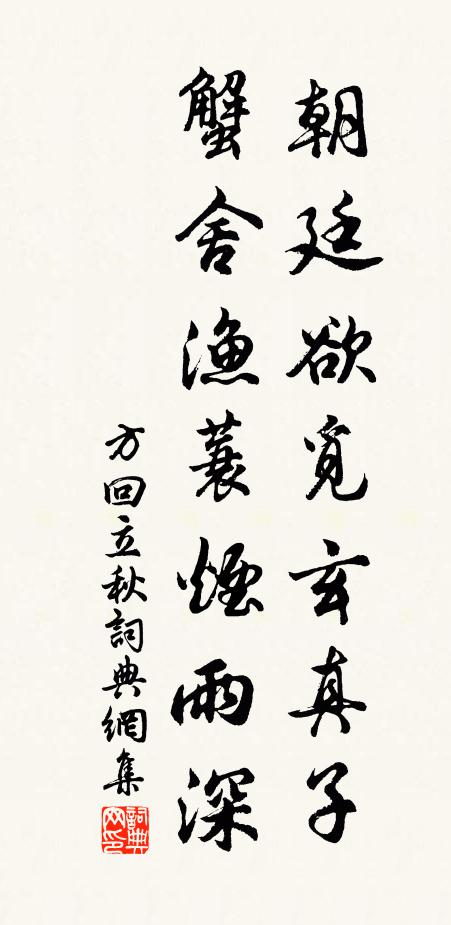 朝廷欲覓玄真子
蟹舍漁蓑煙雨深
方回立秋詞典網集
詞典
网印